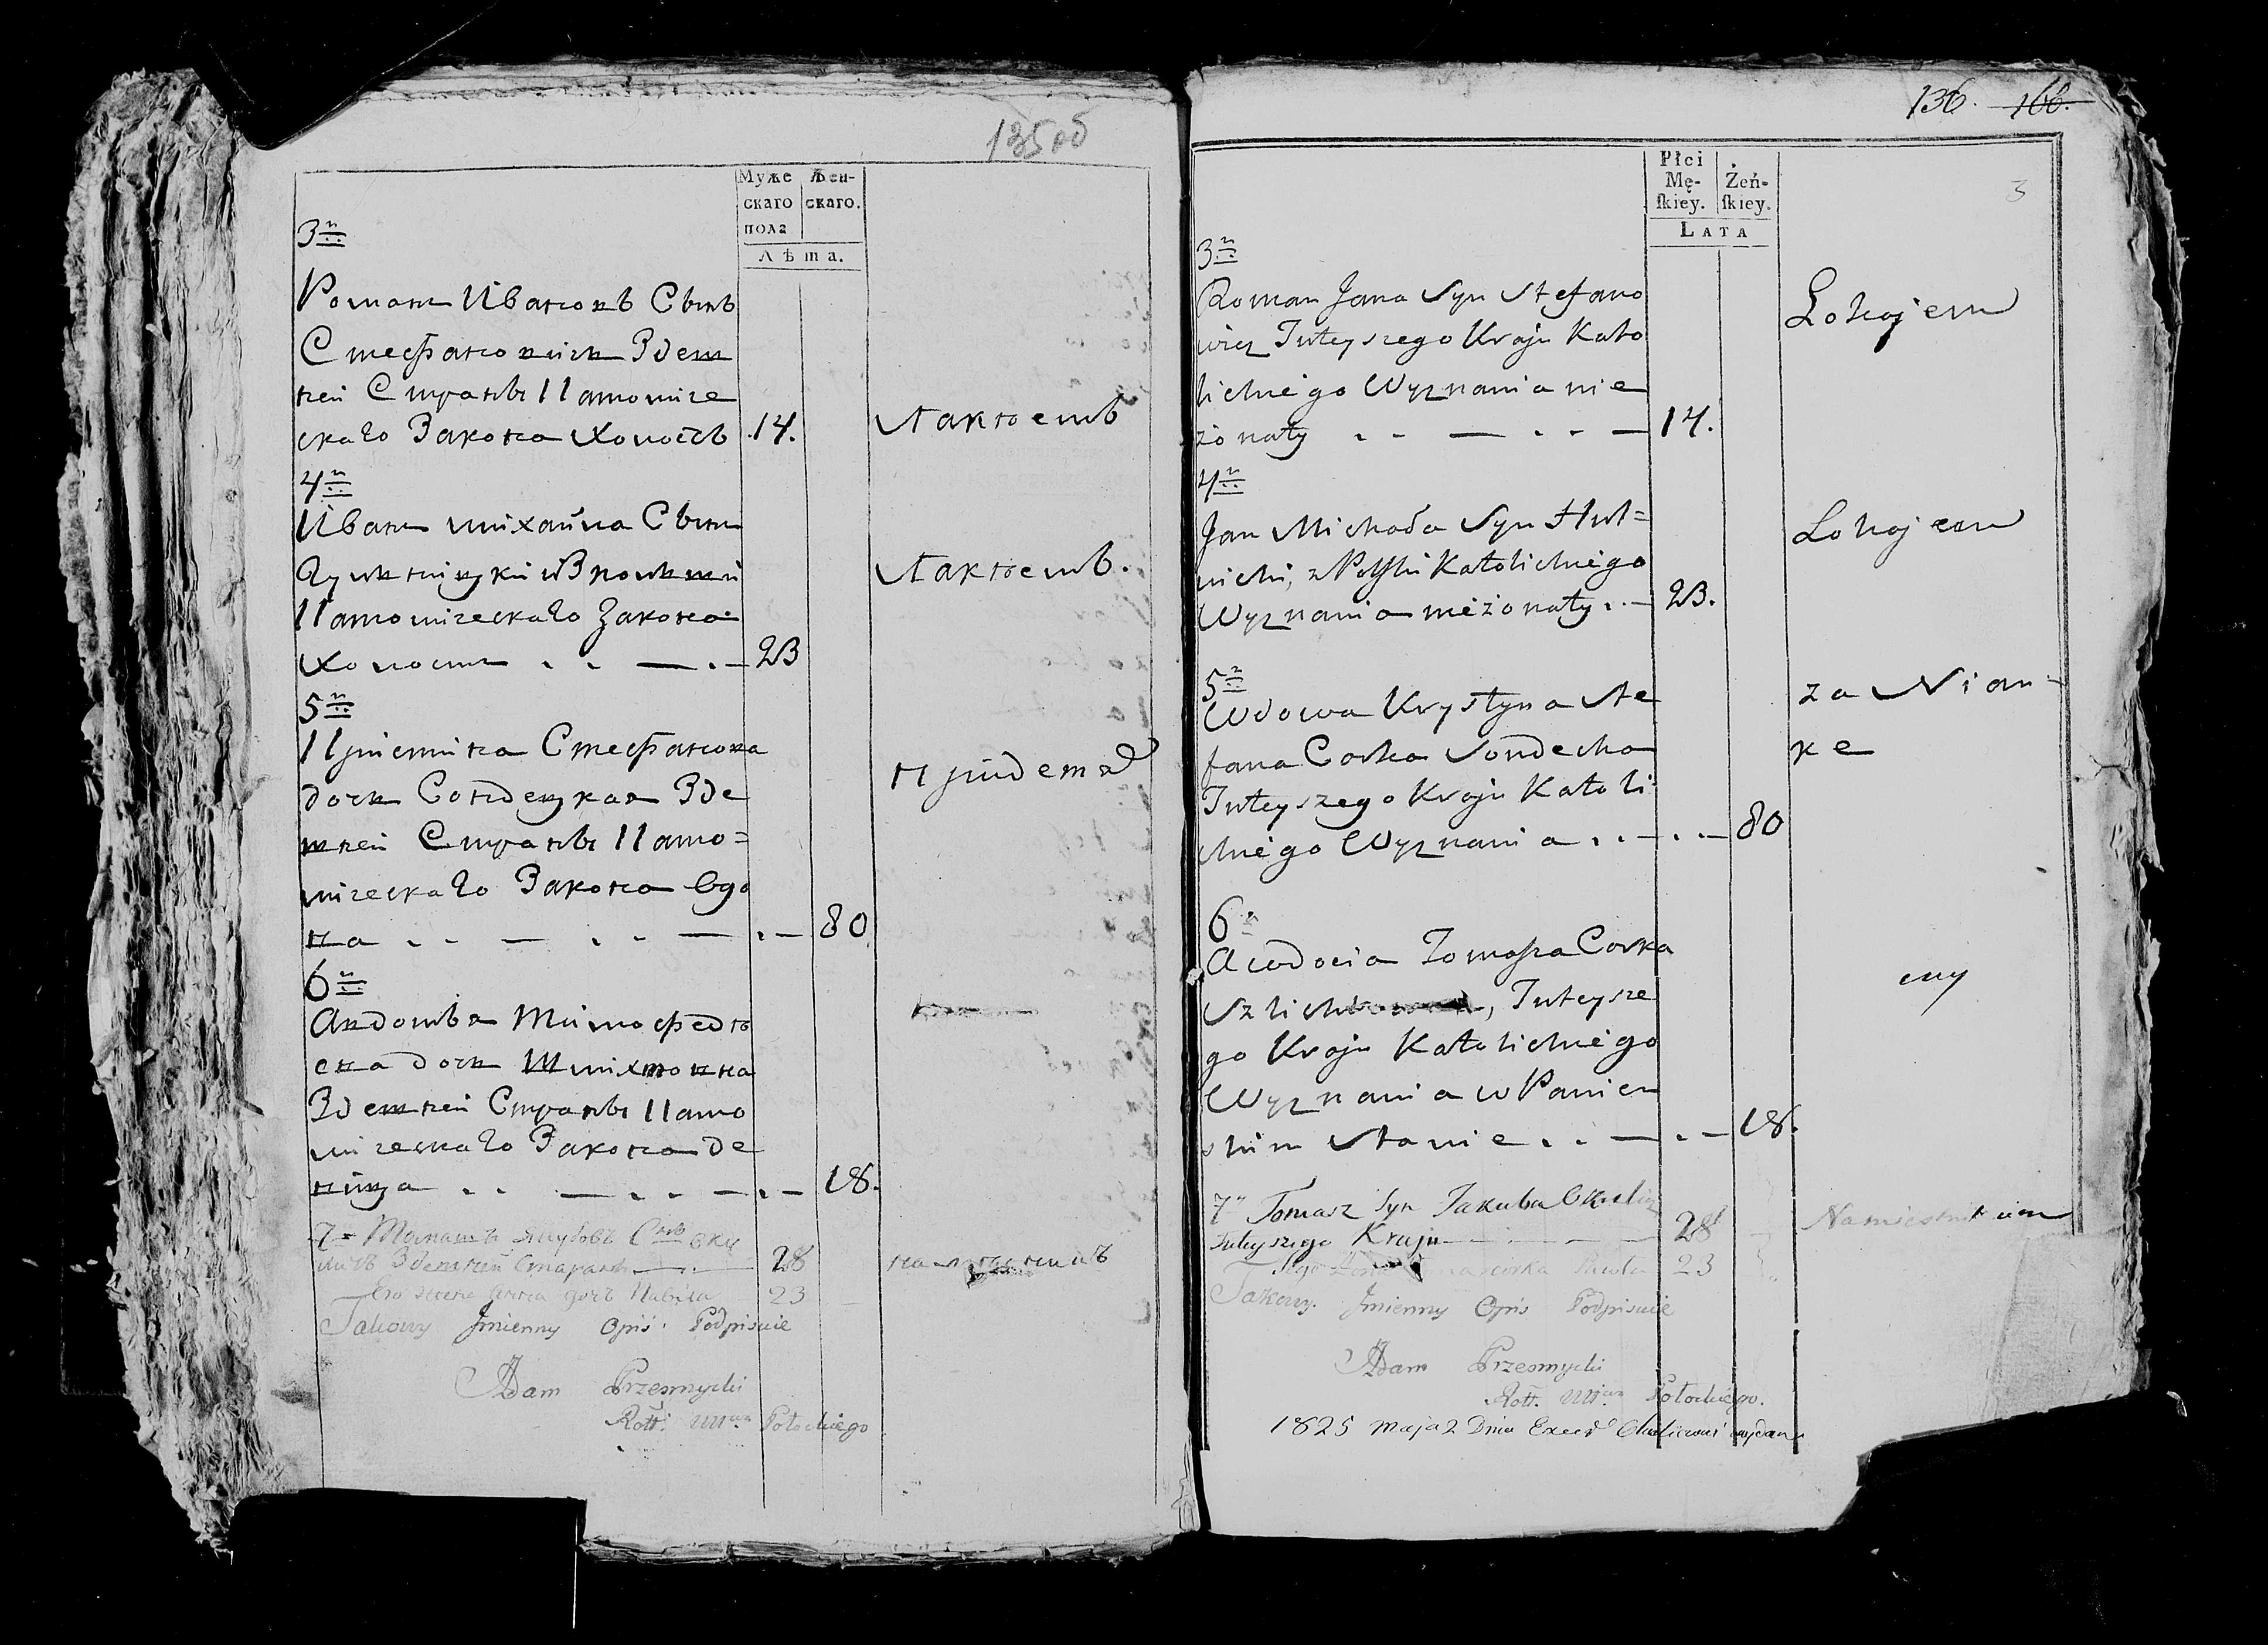 135об
Муже
скаго
пола
Жен-
скаго.
Лѣта.
3
Романъ Ивановъ Сынъ
Стефановичъ Здеш
ней Страны Католиче
скаго Закона Холостъ 14. Лакюемъ
4
Иванъ Михайла Сынъ
Католическаго Закона Лакюемъ.
Холостъ 23
5
Стефанова
дочь Сондецкая Зде
шней Страны Като=
лическаго Закона Вдо
ва 80
6
Авдотья Тимофее
ва дочь Шлихтовна
Здешней Страны Като
лическаго Закона де
вица 18.
7 Томашъ Якубовъ Сынъ Оку
личъ Здешней Страны 28
Его жена Анна дочь 23
Takowy Jmienny Opis Podpisuie
Adam Przesmycki
Rott. Połockiego
136. 166.
3
Płci
Mę-
ſkiey.
Żeń-
ſkiey.
Lata
3
Roman Jana Syn Stefano
wicz Tuteyszego Kraju Kato
lickiego Wyznania nie
żonaty 14. Lokajem
4
Jan Michała Syn Hul=
nicki, z Polski Katolickiego
Wyznania nieżonaty 23. Lokajem
5
Wdowa Krystyna Ste
fana Corka Sondecka
Tuteyszego Kraju Katoli
ckiego Wyznania 80 za Nian-
ke
6
Awdocia Tomasza Corka
Tuteysze
go Kraju Katolickiego
Wyznania w Panien
skim Stanie 18.
7 Tomasz Syn Jakuba Okulicz
Tuteyszego Kraju 28 Namiestnikiem
Jego Żona corka 23
Takowy Jmienny Opis Podpisuie
Adam Przesmycki
Rott. Połockiego.
1825 Maja 2 Dnia wydany